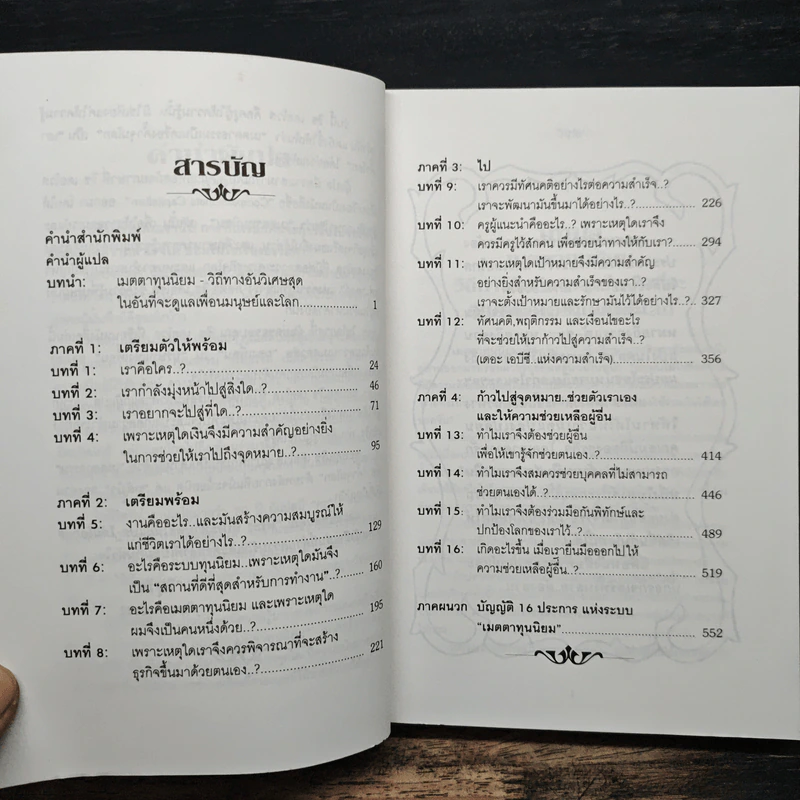 สารบัญ
คำนำสำนักพิมพ์
คำนำผู้แปล
บทนำ: เมตตาทุนนิยม - วิถีทางอันวิเศษสุด
ในอันที่จะดูแลเพื่อนมนุษย์และโลก.................... 1
ภาคที่ 1: เตรียมตัวให้พร้อม
บทที่ 1: เราคือใคร..?................................................ 24
บทที่ 2: เรากำลังมุ่งหน้าไปสู่สิ่งใด..?......................... 46
บทที่ 3: เราอยากจะไปสู่ที่ใด..?................................ 71
บทที่ 4: เพราะเหตุใดเงินจึงมีความสำคัญอย่างยิ่ง
ในการช่วยให้เราไปถึงจุดหมาย..?.................. 95
ภาคที่ 2: เตรียมพร้อม
บทที่ 5: งานคืออะไร..และมันสร้างความสมบูรณ์ให้
แก่ชีวิตเราได้อย่างไร..?............................ 129
บทที่ 6: อะไรคือระบบทุนนิยม..เพราะเหตุใดมันจึง
เป็น "สถานที่ดีที่สุดสำหรับการทำงาน"..?...... 160
บทที่ 7: อะไรคือเมตตาทุนนิยม และเพราะเหตุใด
ผมจึงเป็นคนหนึ่งด้วย..?........................... 195
บทที่ 8: เพราะเหตุใดเราจึงควรพิจารณาที่จะสร้าง
ธุรกิจขึ้นมาด้วยตนเอง..?........................... 221
ภาคที่ 3: ไป
บทที่ 9: เราควรมีทัศนคติอย่างไรต่อความสำเร็จ..?
เราจะพัฒนามันขึ้นมาได้อย่างไร..?............... 226
บทที่ 10: ครูผู้แนะนำคืออะไร..? เพราะเหตุใดเราจึง
ควรมีครูไว้สักคน เพื่อช่วยนำทางให้กับเรา?...... 294
บทที่ 11: เพราะเหตุใดเป้าหมายจึงมีความสำคัญ
อย่างยิ่งสำหรับความสำเร็จของเรา..?
เราจะตั้งเป้าหมายและรักษามันไว้ได้อย่างไร..?.. 327
บทที่ 12: ทัศนคติ,พฤติกรรม และเงื่อนไขอะไร
ที่จะช่วยให้เราก้าวไปสู่ความสำเร็จ..?
(เดอะ เอบีซี..แห่งความสำเร็จ)..................... 356
ภาคที่ 4: ก้าวไปสู่จุดหมาย..ช่วยตัวเราเอง
และให้ความช่วยเหลือผู้อื่น
บทที่ 13: ทำไมเราจึงต้องช่วยผู้อื่น
เพื่อให้เขารู้จักช่วยตนเอง..?....................... 414
บทที่ 14: ทำไมเราจึงสมควรช่วยบุคคลที่ไม่สามารถ
ช่วยตนเองได้..?....................................... 446
บทที่ 15: ทำไมเราจึงต้องร่วมมือกันพิทักษ์และ
ปกป้องโลกของเราไว้..?............................. 489
บทที่ 16: เกิดอะไรขึ้น เมื่อเรายื่นมือออกไปให้
ความช่วยเหลือผู้อื่น..?............................... 519
ภาคผนวก บัญญัติ 16 ประการ แห่งระบบ
"เมตตาทุนนิยม"....................................... 552